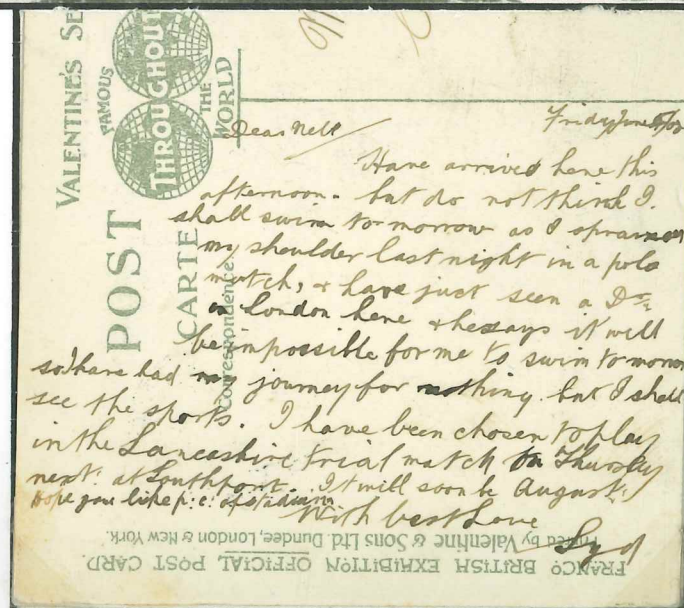 VALENTINE'S SE
FAMOUS
THROUGHOUT
THE
WORLD
POST
CARTE
Correspondence
Friday June
Dear Nell
Have arrived here this
afternoon. but do not think I
shall swim tomorrow as I sprained
my shoulder last night in a polo
match, & have just seen a Dr.
in London here & he says it will
be impossible for me to swim tomorrow
so I have had my journey for nothing but I shall
see the sports. I have been chosen to play
in the Lancashire trial match on Thursday
next. at Southport. It will soon be August.
Hope you like p.c. of stadium
With best love
Syd
Printed by Valentine & Sons Ltd. Dundee, London & New York.
FRANCO BRITISH EXHIBITION OFFICIAL POST CARD.